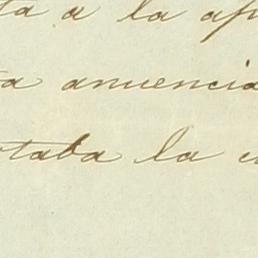 ta a la ap
ta anuencia
taba la